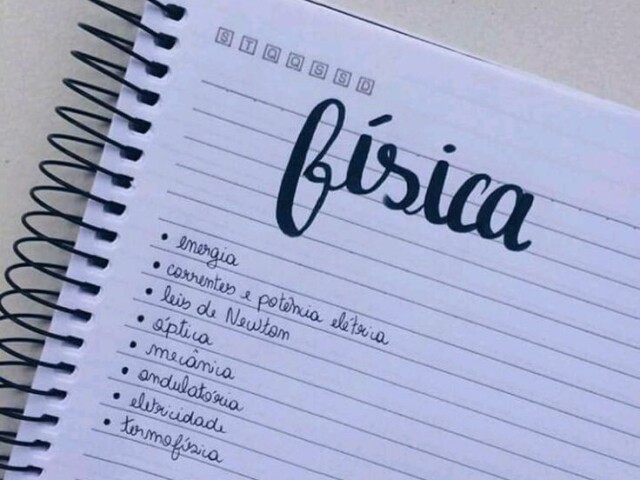 S T Q Q S S D
física
• energia
• correntes e potência elétrica
• leis de Newton
• óptica
• mecânica
• ondulatória
• eletricidade
• termofísica